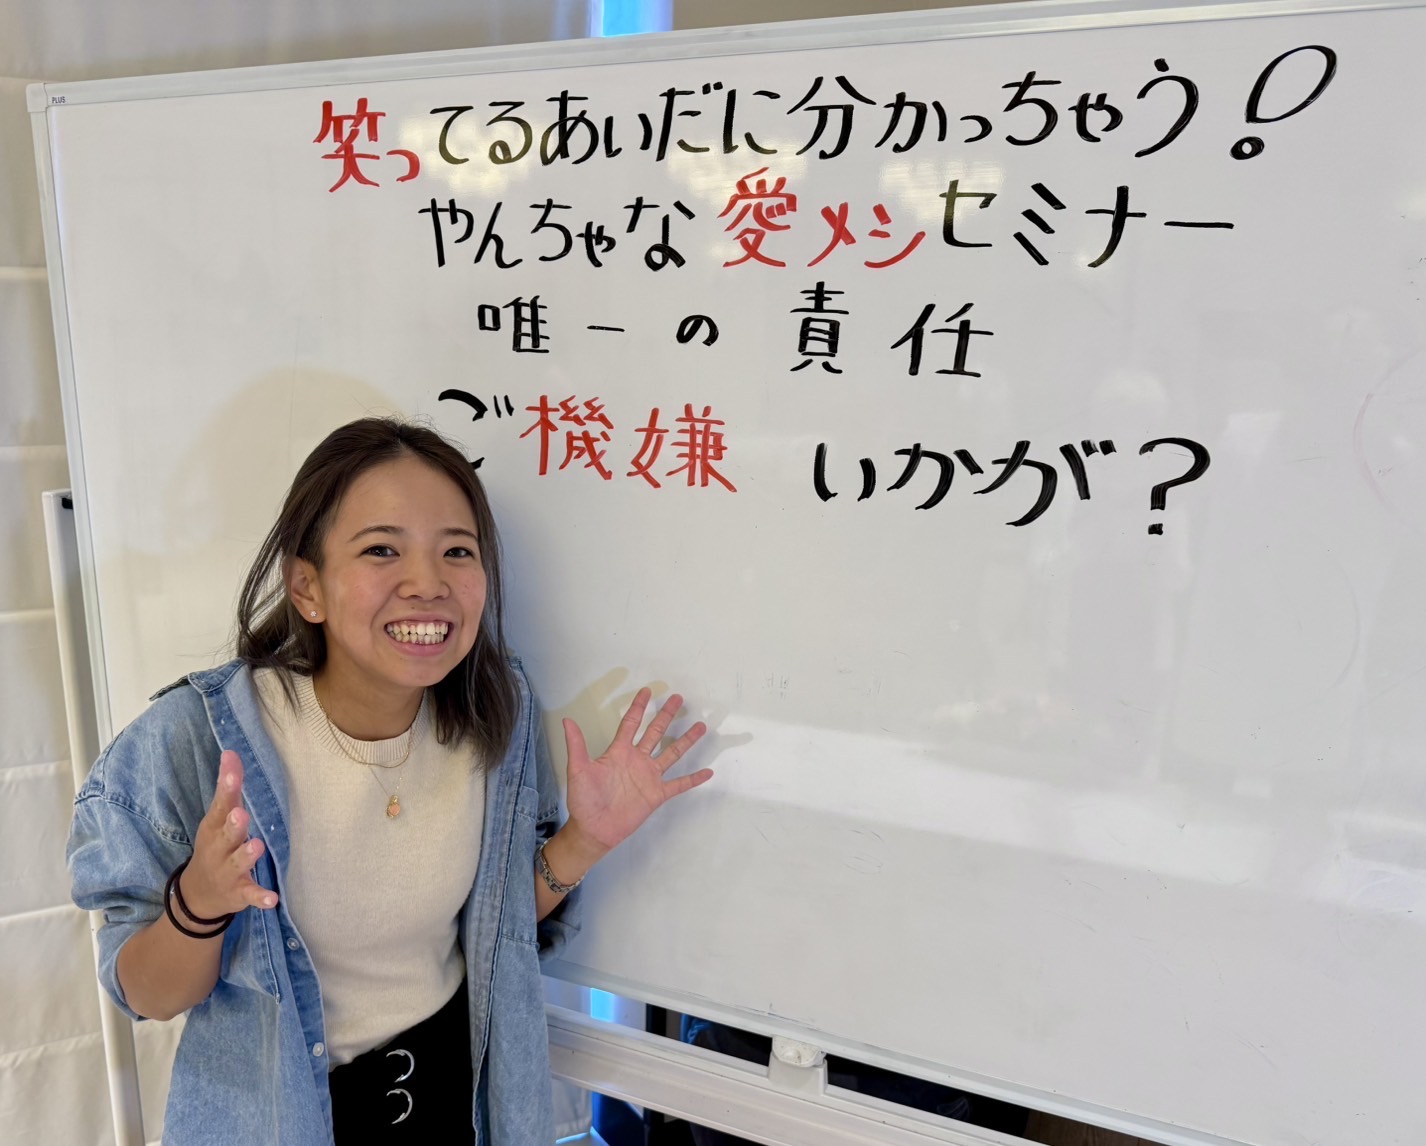 PLUS
笑ってるあいだに分かっちゃう!
やんちゃな愛メシセミナー
唯一の責任
ご機嫌いかが?